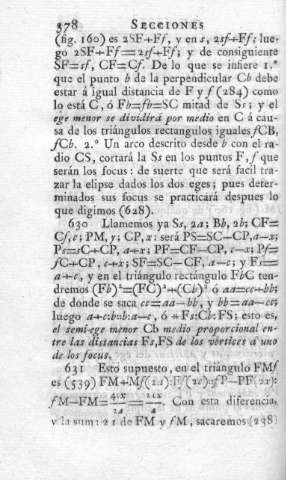 378 SECCIONES
(fig. 160) es 2SF+Ff, y en s, 2sf+Ff; lue-
go 2SF+Ff=2sf+Ff; y de consiguiente
SF=sf, CF=Cf. De lo que se infiere 1.°
que el punto b de la perpendicular Cb debe
estar á igual distancia de F y f (284) como
lo está C, ó Fb=fb=SC mitad de Ss; y el
ege menor se dividirá por medio en C á cau-
sa de los triángulos rectangulos iguales fCB,
fCb. 2.° Un arco descrito desde b con el ra-
dio CS, cortará la Ss en los puntos F, f que
serán los focus: de suerte que será facil tra-
zar la elipse dados los dos eges; pues deter-
minados sus focus se practicará despues lo
que digimos (628).
630 Llamemos ya Ss, 2a; Bb, 2b; CF=
Cf, c; PM, y; CP, x: será PS=SC-CP, a-x;
Ps=sC+CP, a+x; PF=CF-CP, c-x; Pf=
fC+CP, c+x; SF=SC-CF, a-c; y Fs=
a+c, y en el triángulo rectángulo FbC ten-
dremos (Fb)²=(FC)²+(Cb)² ó aa=cc+bb;
de donde se saca cc=aa-bb, y bb=aa-cc;
luego a+c:b::b:a-c, ó Fs:Cb:FS; esto es,
el semi-ege menor Cb medio proporcional en-
tre las distancias Fs, FS de los vertices á uno
de los focus.
631 Esto supuesto, en el triángulo FMf
es (539) FM+Mf(2a):Ff(2c):fP-PF(2x):
fM-FM=4cx/2a=2cx/a. Con esta diferencia,
y la suma 2a de FM y fM, sacaremos (238)